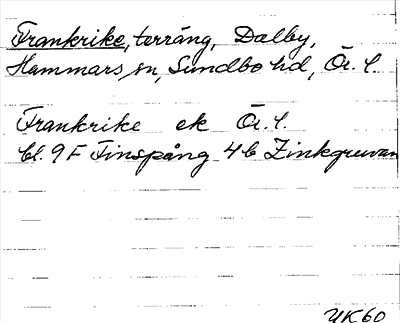 Frankrike, terräng, Dalby,
Hammars sn, Sundbo hd, Ör. l.
Frankrike ek Ör. l.
bl. 9F Finspång 4b Zinkgruvan
YK60